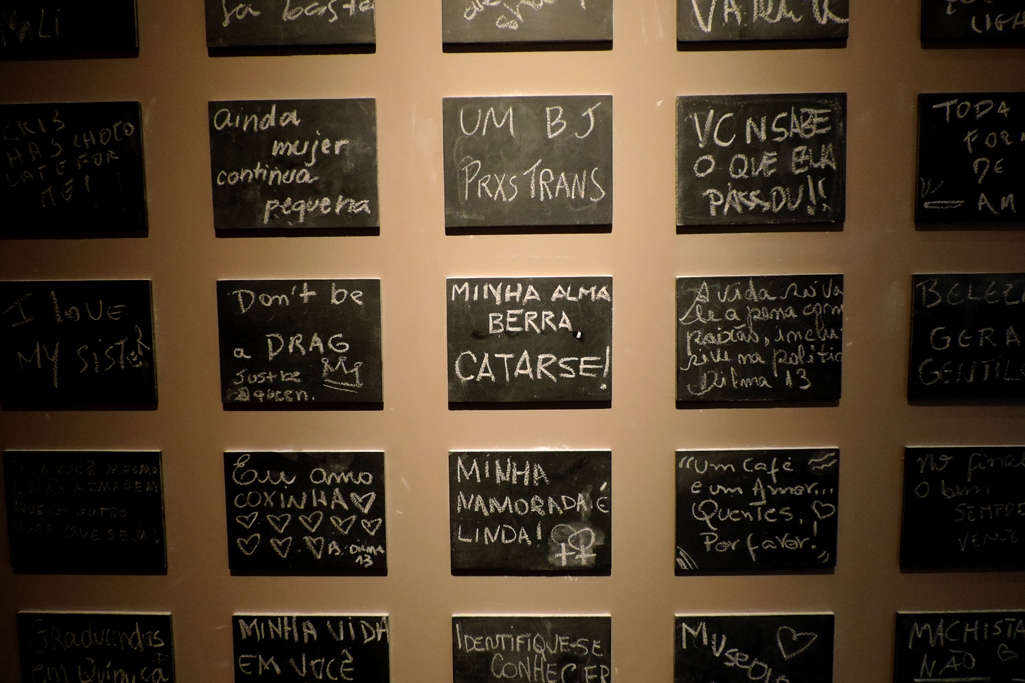 sa basta
UM BJ
PRXS TRANS
VC N SABE
O QUE ELA
PASSOU!!
TODA
FOR
DE
AM
CRIS
HAS CHOCO
LATE FOR
ME!
ainda
mujer
continua
pequena
I love
MY SISTE
Don't be
a DRAG
Just be
a queen.
MINHA ALMA
BERRA,
CATARSE!
A vida só va
le a pena com
paixão, inclu
sive na polític
Dilma 13
BELEZ
GERA
GENTIL
Eu amo
COXINHA
Dilma
13
MINHA
NAMORADA É
LINDA!
"Um Café
e um Amor...
Quentes,
Por favor!"
No fina
O bem
SEMPRE
VENCE
Graduandas
em Química
MINHA VIDA
EM VOCÊ
IDENTIFIQUE-SE
CONHECER
MUSEO
MACHISTA
NÃO